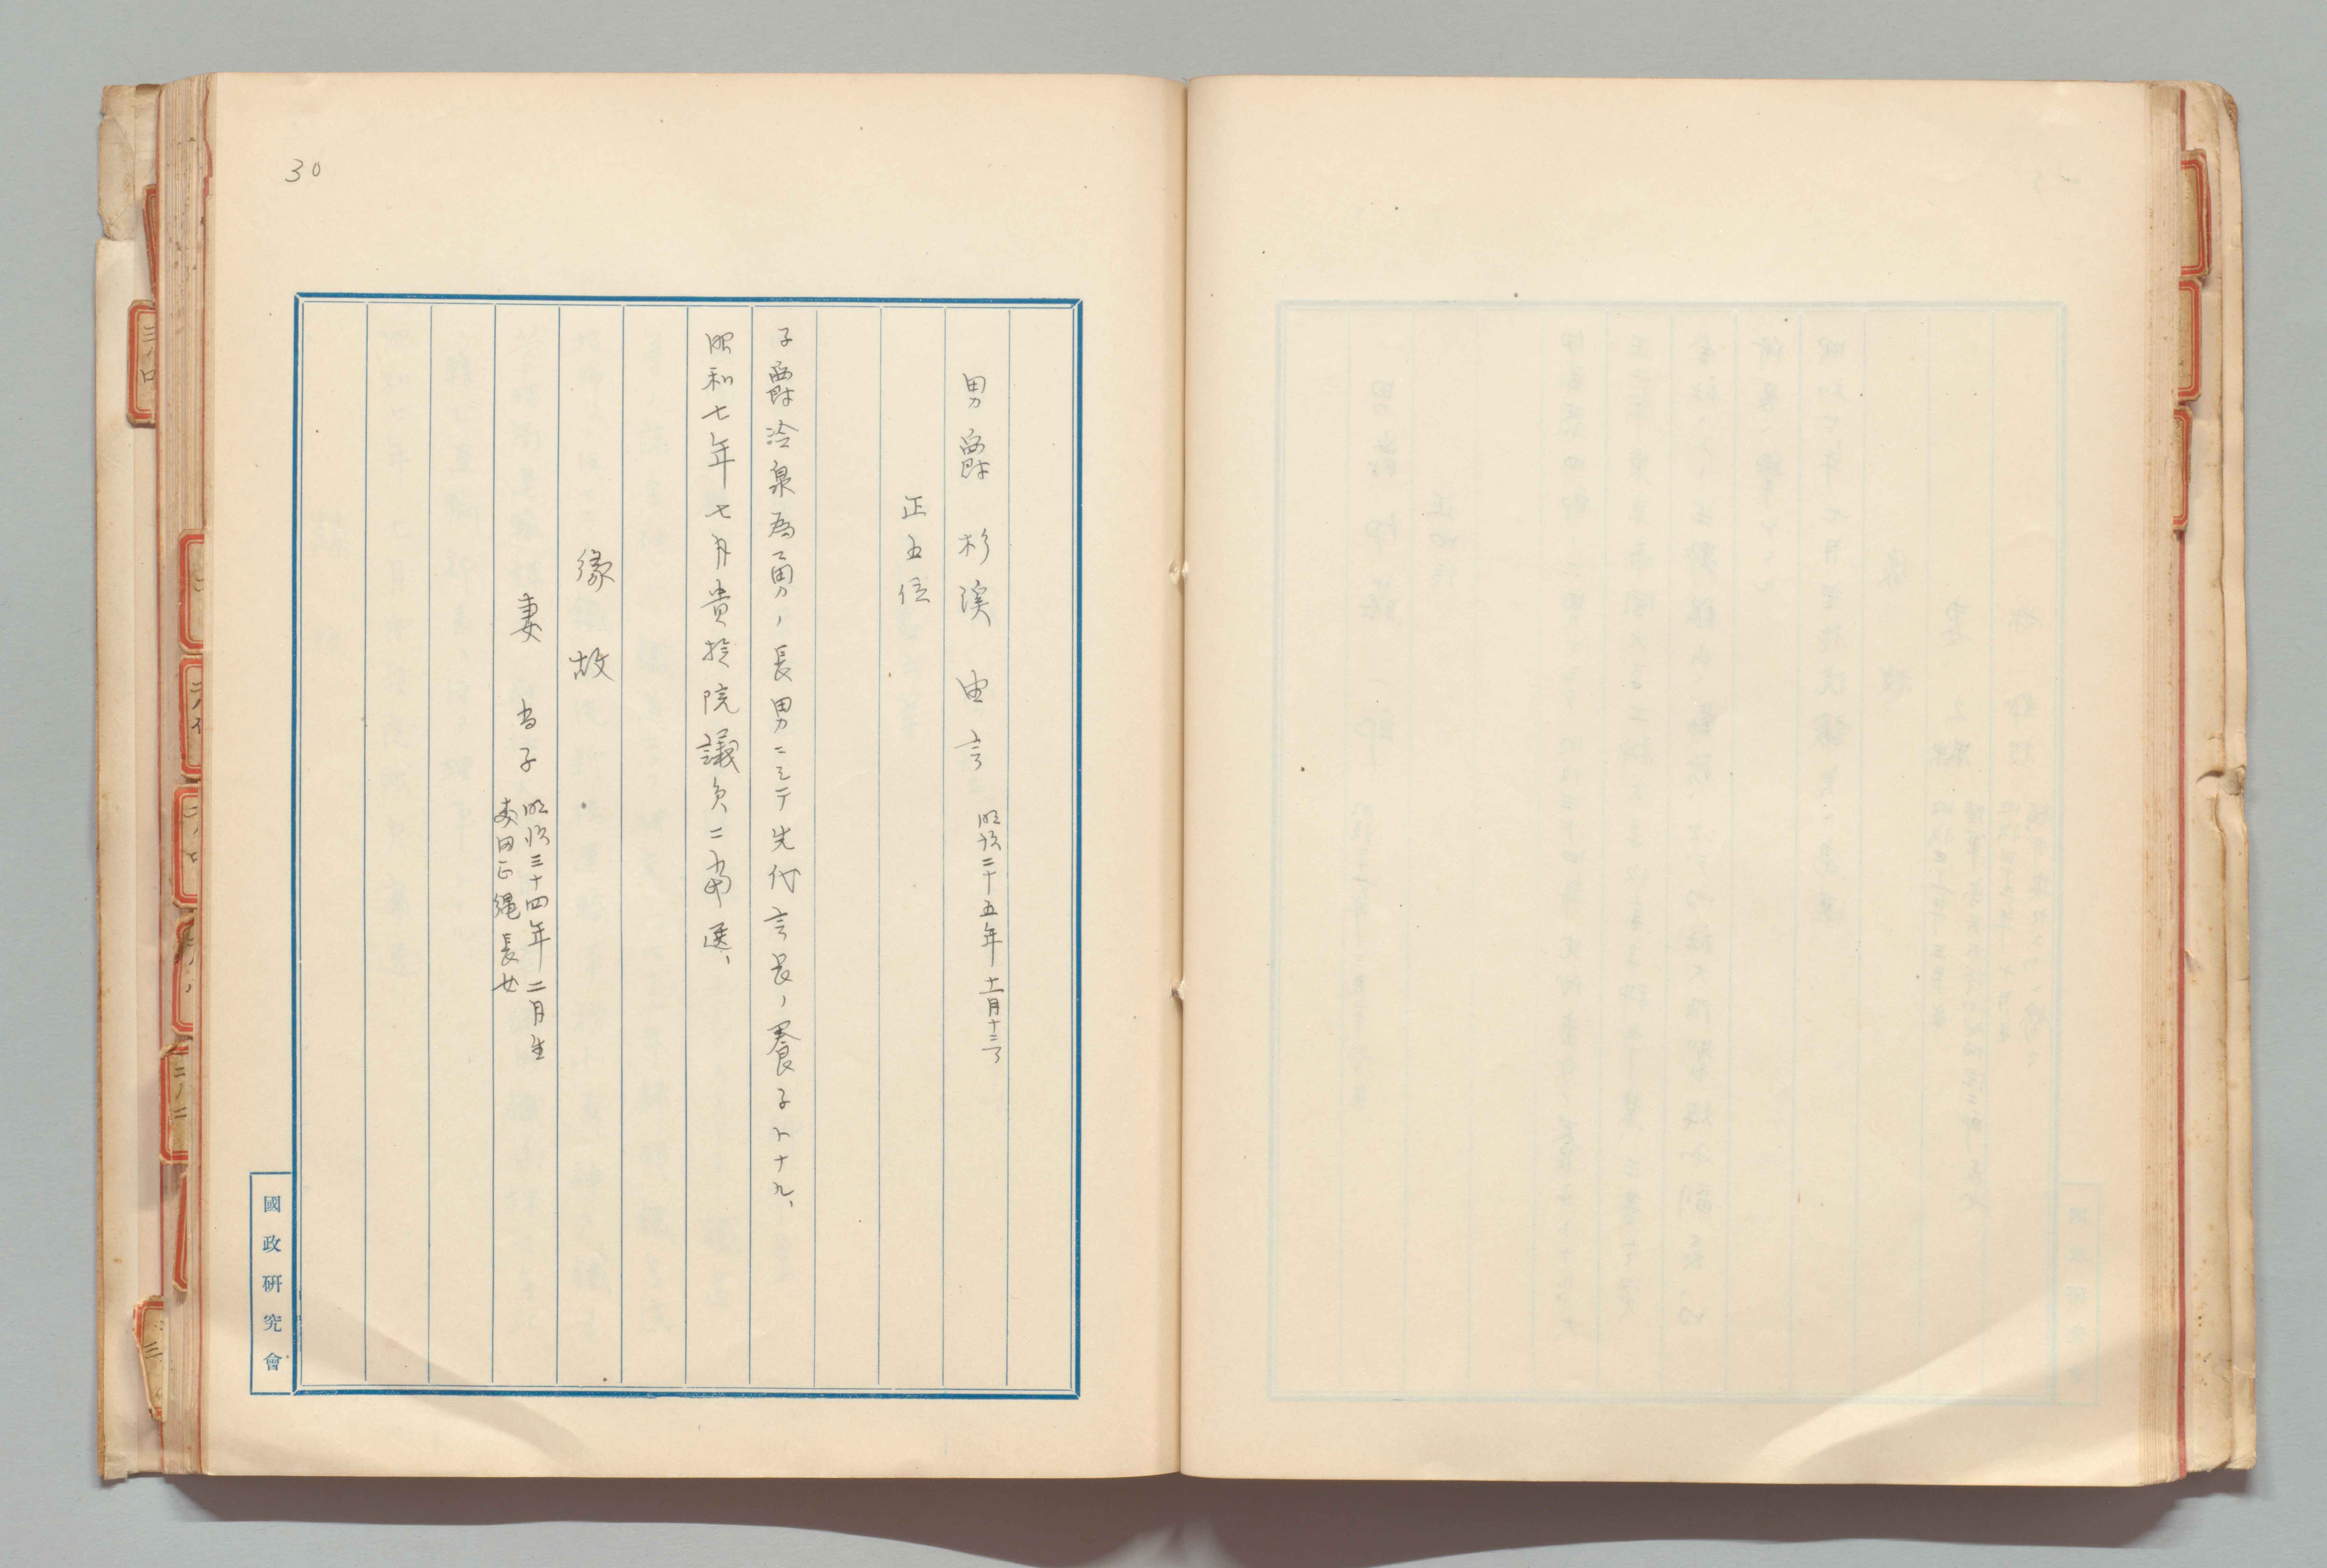 30
男爵 杉溪 由言 明治二十五年十一月十三
正五位
子爵冷泉為勇ノ長男ニシテ先代言長ノ養子ト十九、
昭和七年七月貴族院議員ニ当選、
縁故
妻 為子 明治三十四年二月生
本田正縄長女
國政研究會